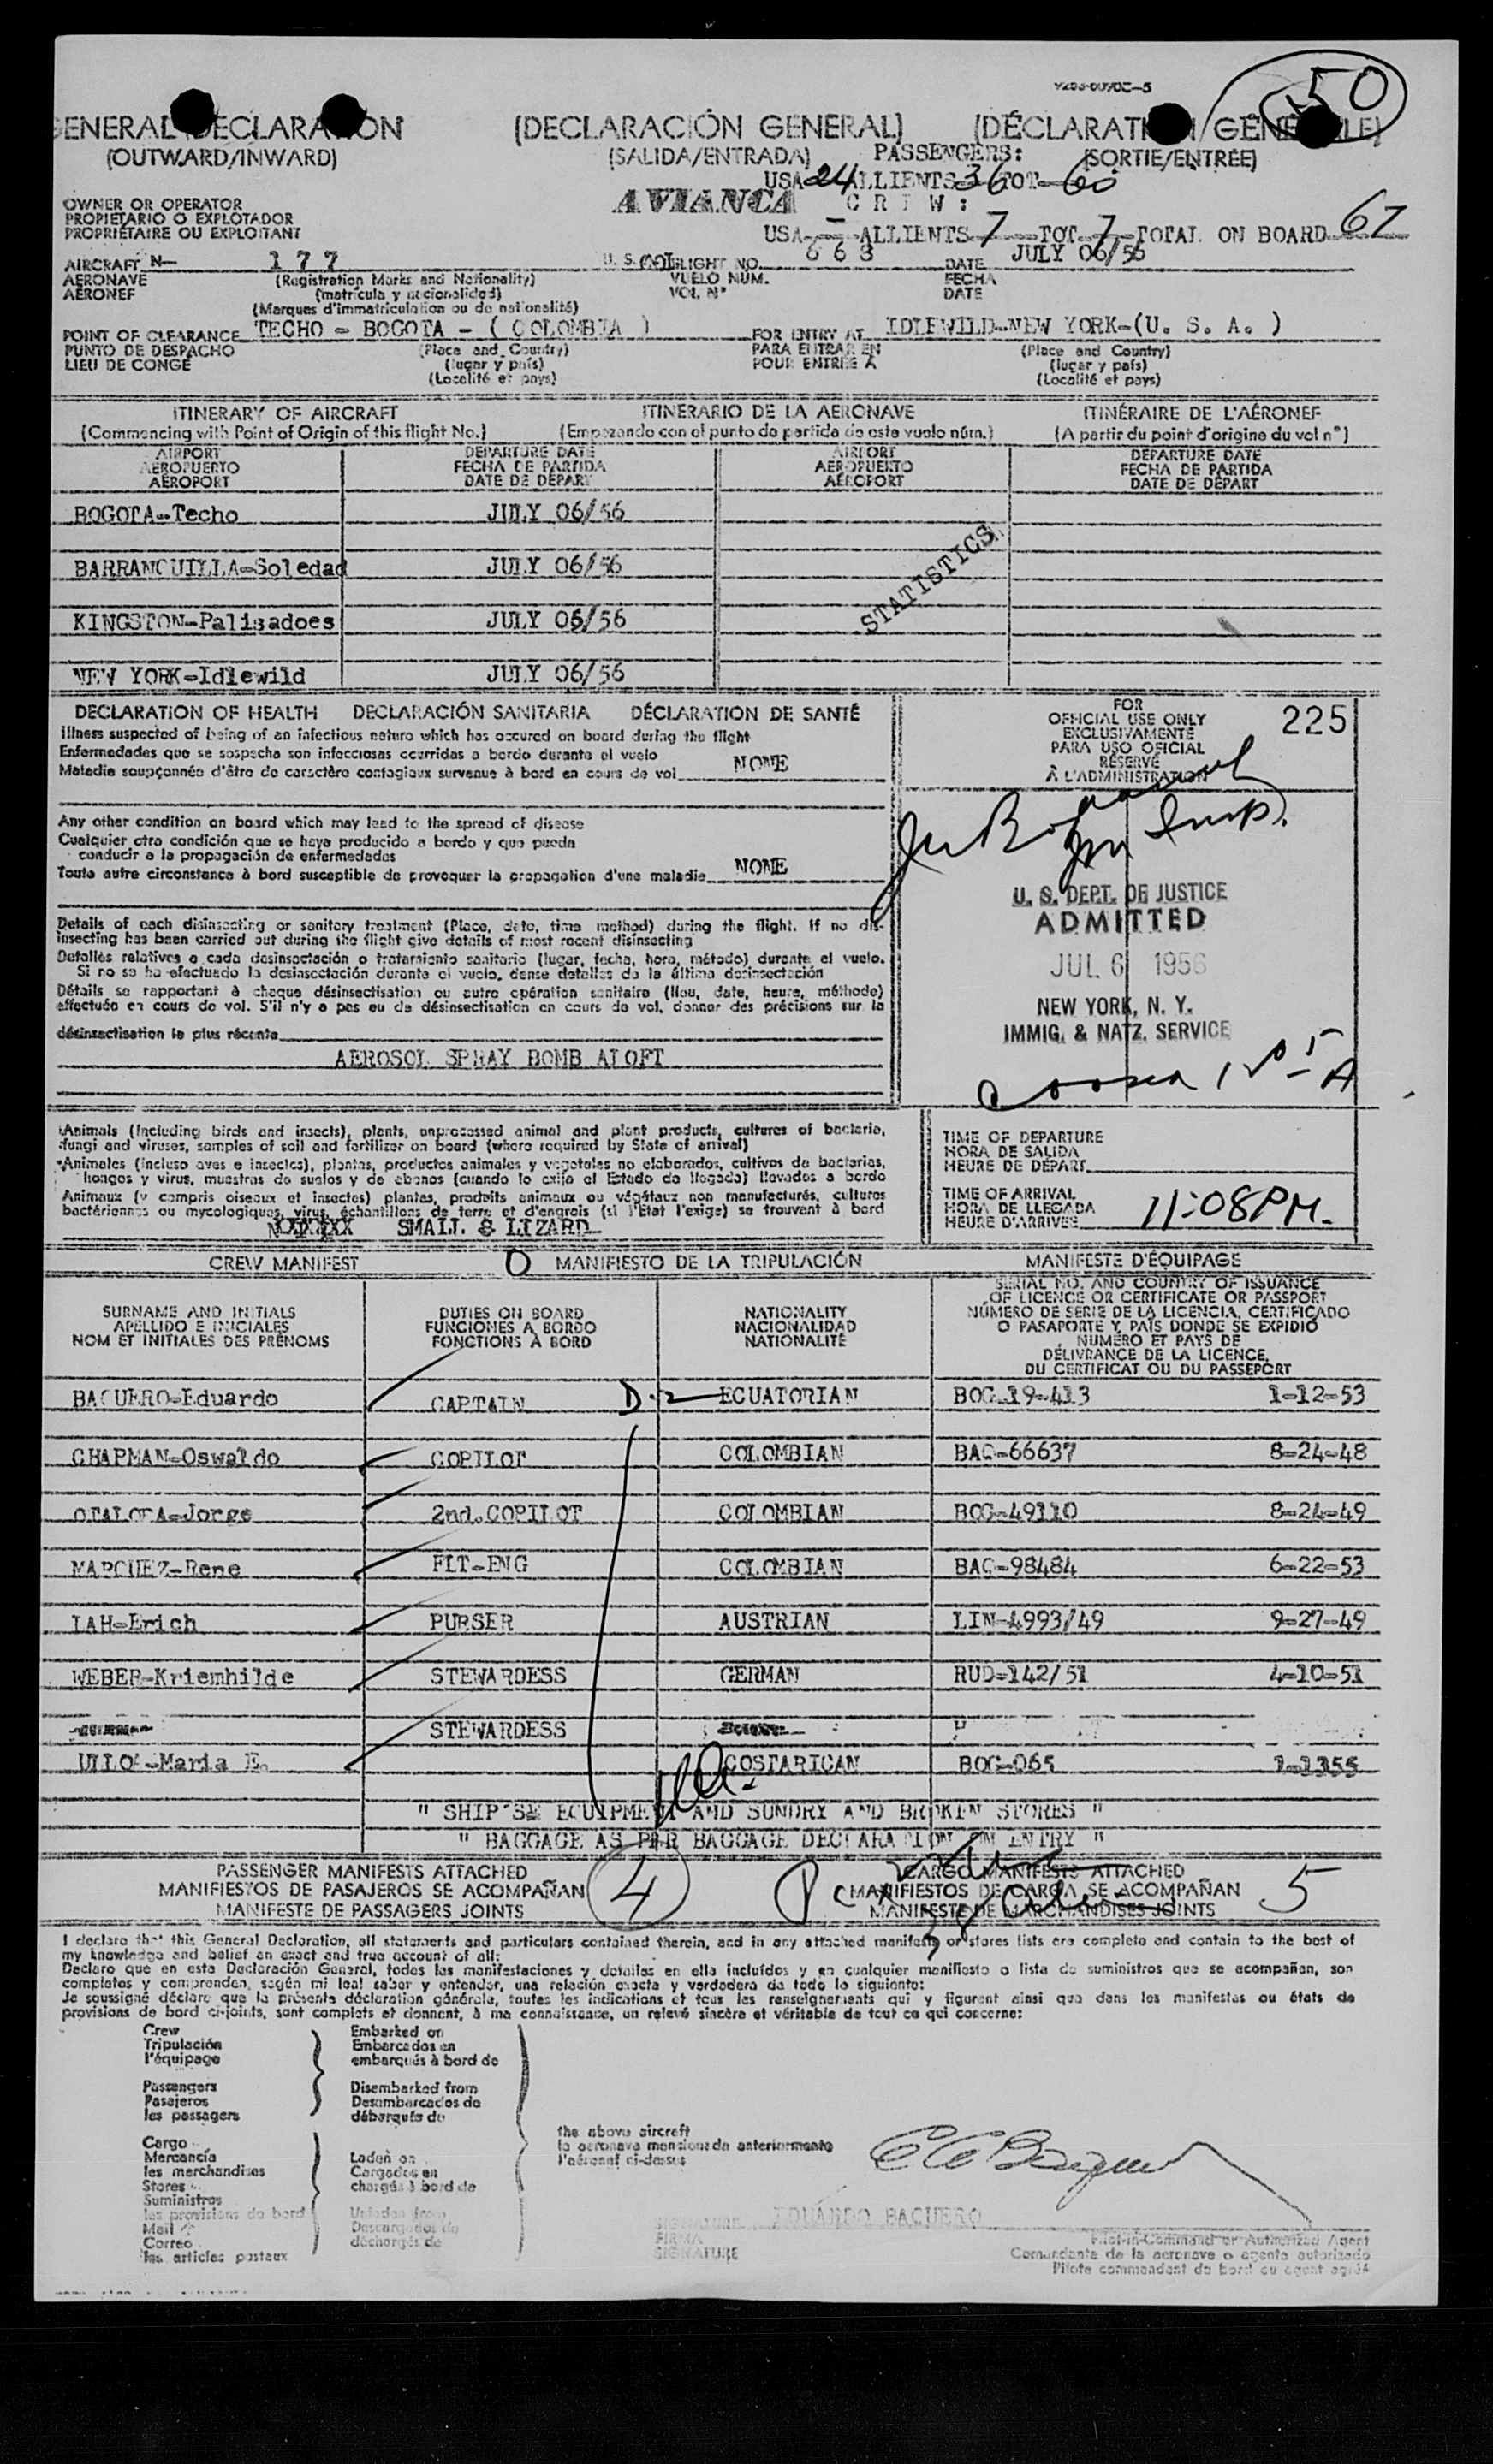 50
GENERAL DECLARATION (DECLARACIÓN GENERAL) (DÉCLARATION GÉNÉRALE)
(OUTWARD/INWARD) (SALIDA/ENTRADA) PASSENGERS: (SORTIE/ENTRÉE)
USA-24 ALLIENTS-36 TOT-60
OWNER OR OPERATOR AVIANCA C R E W :
PROPIETARIO O EXPLOTADOR
PROPRIÉTAIRE OU EXPLOITANT USA- - -ALLIENTS-7-TOT-7-TOTAL ON BOARD 67
AIRCRAFT N- 177 FLIGHT NO. 668 DATE JULY 06/56
AERONAVE (Registration Marks and Nationality) VUELO NUM. FECHA
AÉRONEF (matrícula y nacionalidad) VOL N° DATE
(Marques d'immatriculation ou de nationalité)
POINT OF CLEARANCE TECHO - BOGOTA - ( COLOMBIA ) FOR ENTRY AT IDLEWILD-NEW YORK-(U. S. A. )
PUNTO DE DESPACHO (Place and Country) PARA ENTRAR EN (Place and Country)
LIEU DE CONGÉ (lugar y país) POUR ENTRÉE À (lugar y país)
(Localité et pays) (Localité et pays)
ITINERARY OF AIRCRAFT ITINERARIO DE LA AERONAVE ITINÉRAIRE DE L'AÉRONEF
(Commencing with Point of Origin of this flight No.) (Empezando con el punto de partida de este vuelo núm.) (A partir du point d'origine du vol n°)
AIRPORT DEPARTURE DATE AIRPORT DEPARTURE DATE
AEROPUERTO FECHA DE PARTIDA AEROPUERTO FECHA DE PARTIDA
AÉROPORT DATE DE DÉPART AÉROPORT DATE DE DÉPART
BOGOTA-Techo JULY 06/56
STATISTICS
BARRANQUILLA-Soledad JULY 06/56
KINGSTON-Palisadoes JULY 06/56
NEW YORK-Idlewild JULY 06/56
DECLARATION OF HEALTH DECLARACIÓN SANITARIA DÉCLARATION DE SANTÉ
Illness suspected of being of an infectious nature which has occured on board during the flight
Enfermedades que se sospecha son infecciosas ocurridas a bordo durante el vuelo
Maladie soupçonnée d'être de caractère contagieux survenue à bord en cours de vol NONE
Any other condition on board which may lead to the spread of disease
Cualquier otra condición que se haya producido a bordo y que pueda
conducir a la propagación de enfermedades
Toute autre circonstance à bord susceptible de provoquer la propagation d'une maladie NONE
Details of each disinsecting or sanitary treatment (Place, date, time method) during the flight. If no dis-
insecting has been carried out during the flight give details of most recent disinsecting
Detalles relativos a cada desinsectación o tratamiento sanitario (lugar, fecha, hora, método) durante el vuelo.
Si no se ha efectuado la desinsectación durante el vuelo, dense detalles de la última desinsectación
Détails se rapportant à chaque désinsectisation ou autre opération sanitaire (lieu, date, heure, méthode)
effectuée en cours de vol. S'il n'y a pas eu de désinsectisation en cours de vol, donner des précisions sur la
désinsectisation la plus récente
AEROSOL SPRAY BOMB ALOFT
FOR
OFFICIAL USE ONLY 225
EXCLUSIVAMENTE
PARA USO OFICIAL
RÉSERVÉ
À L'ADMINISTRATION
U. S. DEPT. OF JUSTICE
ADMITTED
JUL 6 1956
NEW YORK, N. Y.
IMMIG. & NATZ. SERVICE
Animals (Including birds and insects), plants, unprocessed animal and plant products, cultures of bacteria,
fungi and viruses, samples of soil and fertilizer on board (where required by State of arrival)
Animales (incluso aves e insectos), plantas, productos animales y vegetales no elaborados, cultivos de bacterias,
hongos y virus, muestras de suelos y de abonos (cuando lo exija el Estado de llegada) llevados a bordo
Animaux (y compris oiseaux et insectes) plantes, produits animaux ou végétaux non manufacturés, cultures
bactériennes ou mycologiques, virus, échantillons de terre et d'engrais (si l'État l'exige) se trouvant à bord
SMALL & LIZARD
TIME OF DEPARTURE
HORA DE SALIDA
HEURE DE DÉPART
TIME OF ARRIVAL
HORA DE LLEGADA 11:08PM.
HEURE D'ARRIVÉE
CREW MANIFEST MANIFIESTO DE LA TRIPULACIÓN MANIFESTE D'ÉQUIPAGE
SURNAME AND INITIALS DUTIES ON BOARD NATIONALITY SERIAL NO. AND COUNTRY OF ISSUANCE
APELLIDO E INICIALES FUNCIONES A BORDO NACIONALIDAD OF LICENCE OR CERTIFICATE OR PASSPORT
NOM ET INITIALES DES PRÉNOMS FONCTIONS À BORD NATIONALITÉ NÚMERO DE SERIE DE LA LICENCIA, CERTIFICADO
O PASAPORTE Y PAÍS DONDE SE EXPIDIÓ
NUMÉRO ET PAYS DE
DÉLIVRANCE DE LA LICENCE,
DU CERTIFICAT OU DU PASSEPORT
BAQUERO-Eduardo CAPTAIN D-2 ECUATORIAN BOG-19-413 1-12-53
CHAPMAN-Oswaldo COPILOT COLOMBIAN BAQ-66637 8-24-48
OTALORA-Jorge 2nd.COPILOT COLOMBIAN BOG-49110 8-24-49
MARQUEZ-Rene FLT-ENG COLOMBIAN BAQ-98484 6-22-53
LAH-Erich PURSER AUSTRIAN LIN-4993/49 9-27-49
WEBER-Kriemhilde STEWARDESS GERMAN RUD-142/51 4-10-51
STEWARDESS
ULLOA-Maria E. COSTARICAN BOG-065 1-1355
" SHIP'SE EQUIPMENT AND SUNDRY AND BROKEN STORES "
" BAGGAGE AS PER BAGGAGE DECLARATION ON ENTRY "
PASSENGER MANIFESTS ATTACHED CARGO MANIFESTS ATTACHED
MANIFIESTOS DE PASAJEROS SE ACOMPAÑAN 4 MANIFIESTOS DE CARGA SE ACOMPAÑAN 5
MANIFESTE DE PASSAGERS JOINTS MANIFESTE DE MARCHANDISES JOINTS
I declare that this General Declaration, all statements and particulars contained therein, and in any attached manifests or stores lists are complete and contain to the best of
my knowledge and belief an exact and true account of all:
Declaro que en esta Declaración General, todas las manifestaciones y detalles en ella incluídos y en cualquier manifiesto o lista de suministros que se acompañan, son
completos y comprenden, según mi leal saber y entender, una relación exacta y verdadera de todo lo siguiente:
Je soussigné déclare que la présente déclaration générale, toutes les indications et tous les renseignements qui y figurent ainsi que dans les manifestes ou états de
provisions de bord ci-joints, sont complets et donnent, à ma connaissance, un relevé sincère et véritable de tout ce qui concerne:
Crew Embarked on
Tripulación Embarcados en
l'équipage embarqués à bord de
Passengers Disembarked from
Pasajeros Desembarcados de
les passagers débarqués de
the above aircraft
Cargo la aeronave mencionada anteriormente
Mercancía Laden on l'aéronef ci-dessus
les merchandises Cargados en
Stores chargés à bord de
Suministros
les provisions de bord Unladen from
Mail Descargados de SIGNATURE EDUARDO BAQUERO
Correo déchargés de FIRMA Pilot-in-Command or Authorized Agent
les articles postaux SIGNATURE Comandante de la aeronave o agente autorizado
Pilote commandant de bord ou agent agréé